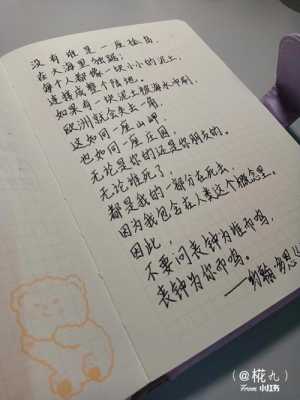 没有谁是一座孤岛,
在大海里独踞;
每个人都像一块小小的泥土,
连接成整个陆地。
如果有一块泥土被海水冲刷,
欧洲就会失去一角,
这如同一座山岬,
也如同一座庄园,
无论是你的还是你朋友的。
无论谁死了,
都是我的一部分在死去,
因为我包含在人类这个概念里。
因此,
不要问丧钟为谁而鸣,
丧钟为你而鸣。
——约翰·多恩
(@椛九)
From 小红书